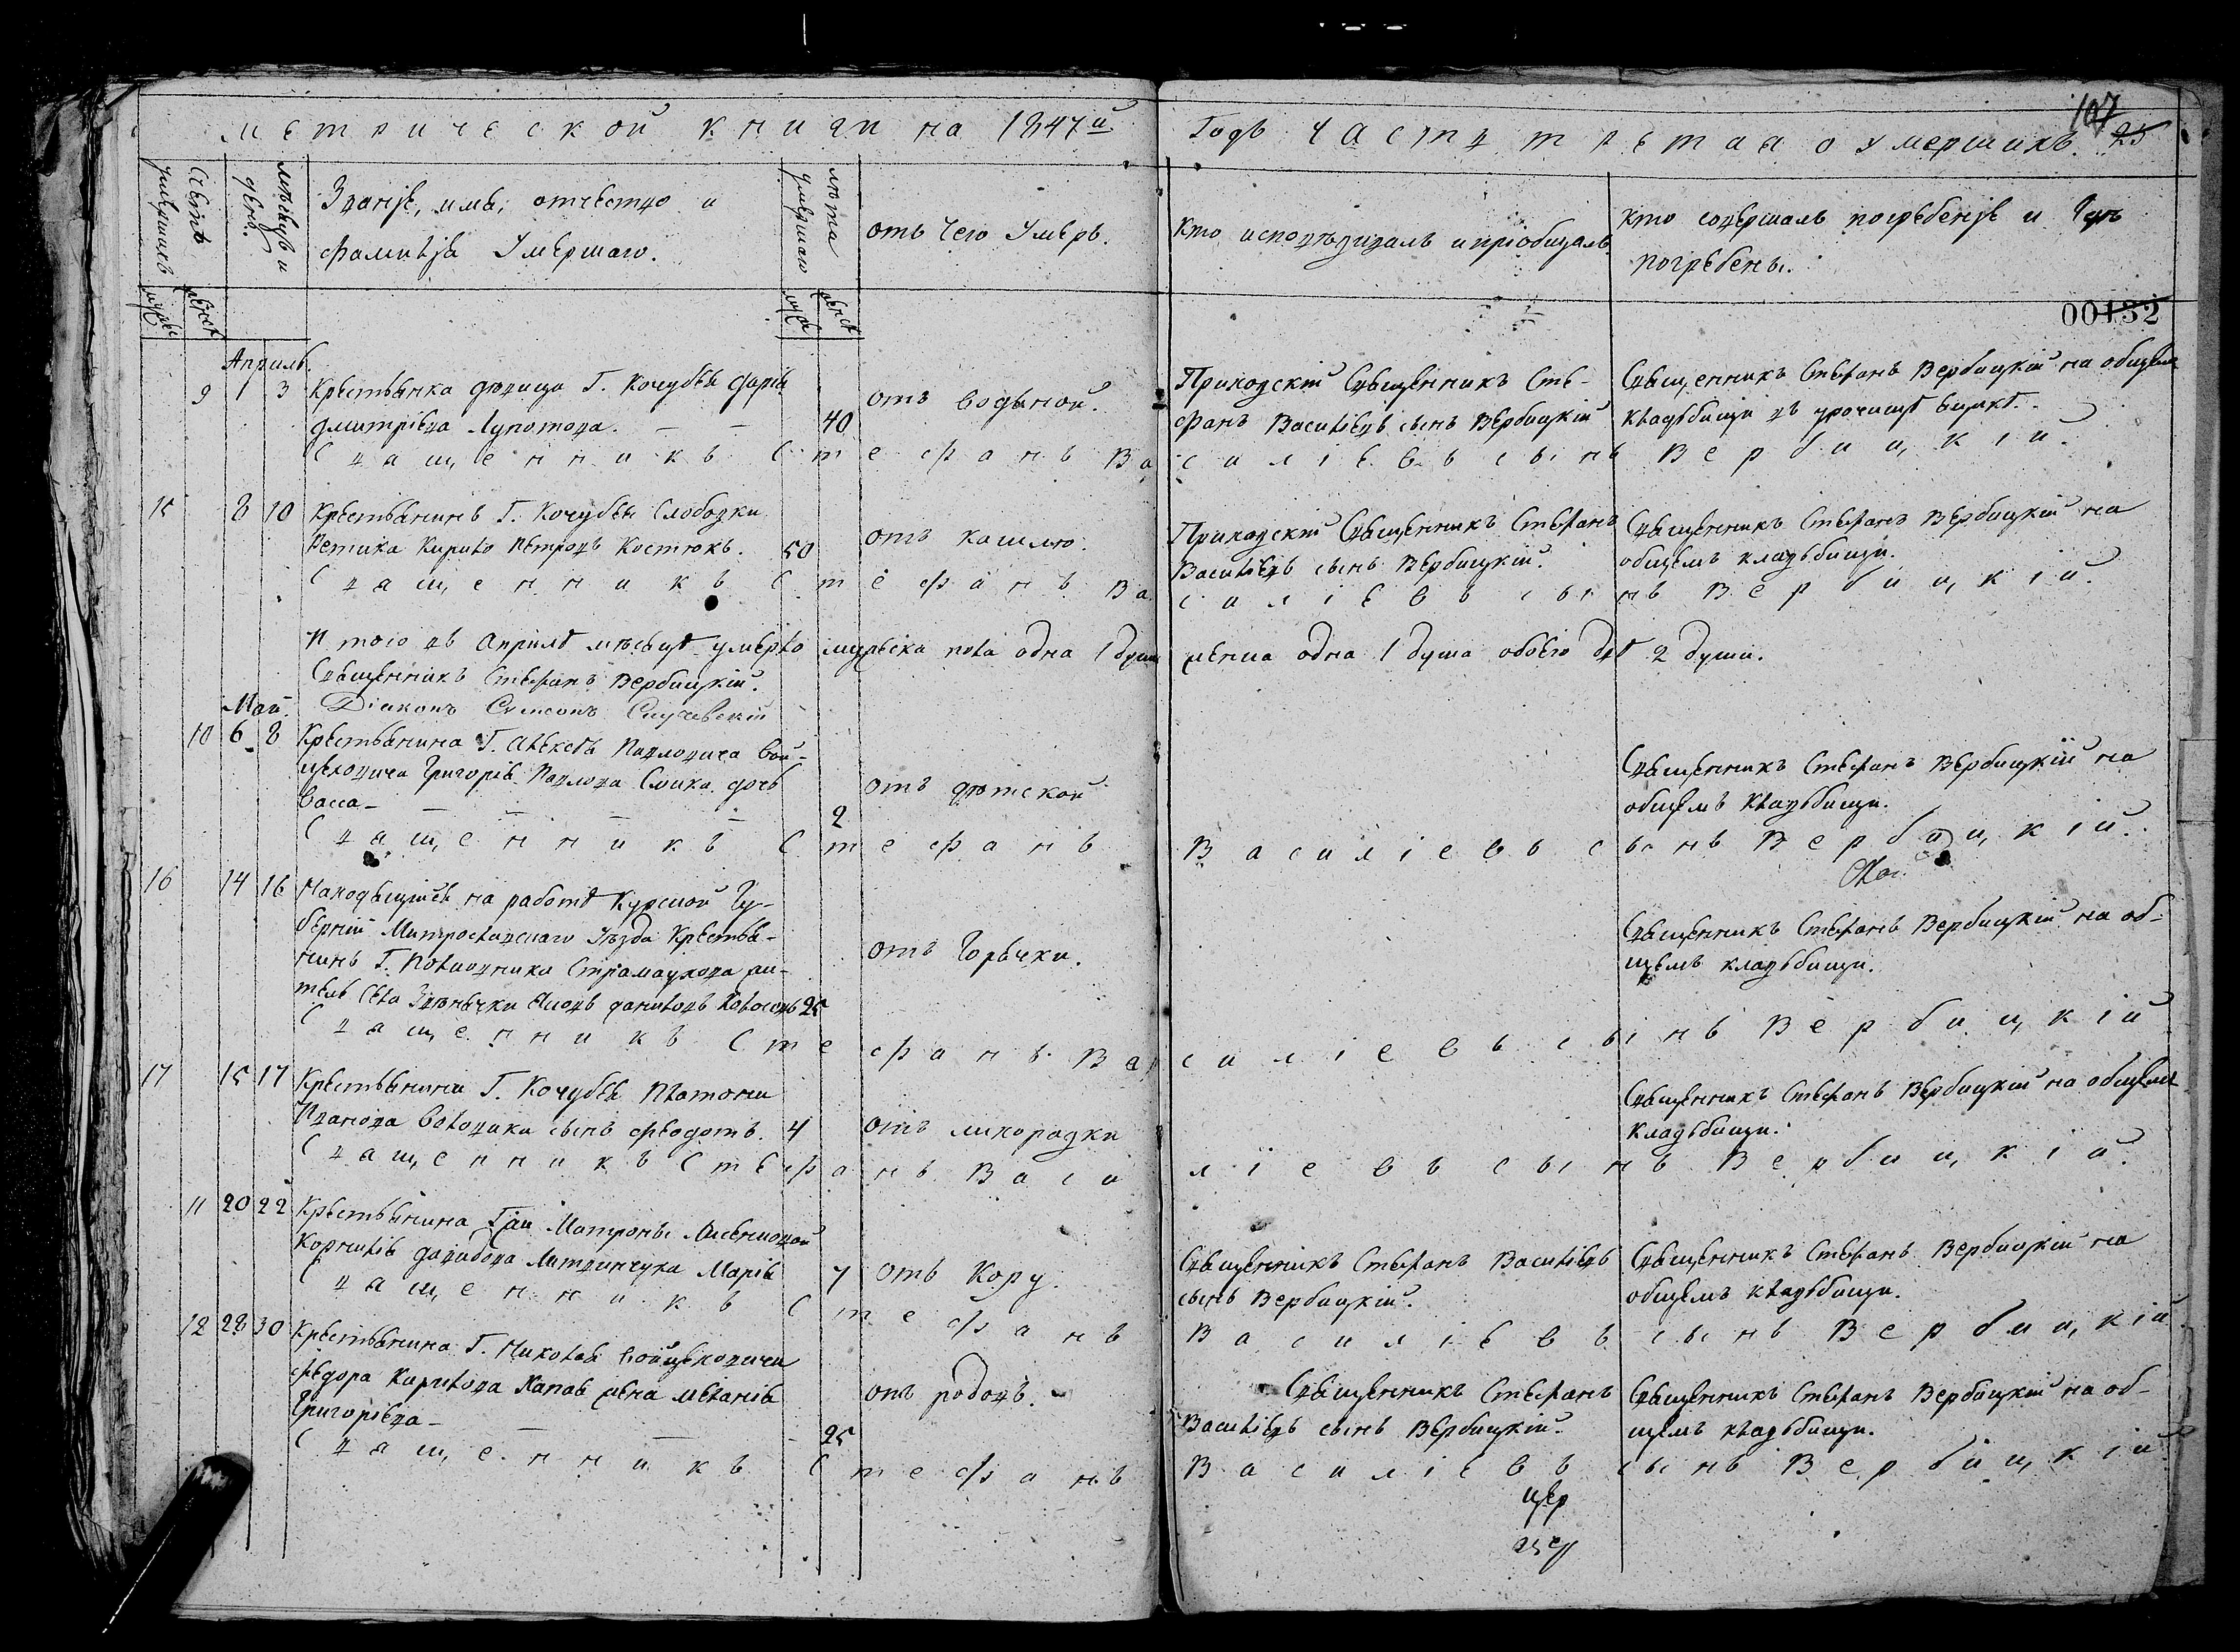 метрической книги на 1847й
Годъ часть третая о умершихъ.
107
25
Счетъ умершихъ
мѣсяцъ и день.
Званіе, имя, отчество и
фамилія Умершаго.
лѣта умершаго
отъ Чего Умеръ.
кто исповѣдывалъ и пріобщалъ
кто совершалъ погребеніе и Гдѣ
погребены.
мужес
женск
муж
женск
00132
Апрель.
9 1 3 Крестьянка вдовица Г. Кочубея Дарія
Дмитріева 40
отъ водяной.
Приходскій Священникъ Сте-
фанъ Василіевъ сынъ Вербицкій
Священникъ Стефанъ Вербицкій на общемъ
кладьбищи въ урочищѣ
Священникъ Стефанъ Василіевъ сынъ Вербицкій.
15 8 10 Крестьянинъ Г. Кочубея Слободки
Ретика Кирило Петровъ Костюкъ. 50
отъ кашлю.
Приходскій Священникъ Стефанъ
Василіевъ сынъ Вербицкій.
Священникъ Стефанъ Вербицкій на
общемъ кладьбищи.
Священникъ Стефанъ Василіевъ сынъ Вербицкій.
Итого въ Априлѣ мѣсяцѣ умерло мужеска пола одна 1 душа женска одна 1 душа обоего двѣ 2 души.
Священникъ Стефанъ Вербицкій.
Діаконъ Симеонъ
Май.
10 6 8 Крестьянина Г. Алексѣя Павловича Вой-
цеховича Григорія Павлова дочь
Васса 2
отъ дѣтской
Священникъ Стефанъ Вербицкій на
общемъ кладьбищи.
Священникъ Стефанъ Василіевъ сынъ Вербицкій.
16 14 16 Находящійся на работѣ Курской Гу-
берніи Уѣзда Крестья-
нинъ Г. Полковника жи-
тель села Даниловъ 25
отъ Горячки.
Священникъ Стефанъ Вербицкій на об-
щемъ кладьбищи.
Священникъ Стефанъ Василіевъ сынъ Вербицкій
17 15 17 Крестьянина Г. Кочубея Платона
Иванова сынъ Федотъ. 4
отъ лихорадки
Священникъ Стефанъ Вербицкій на общемъ
кладьбищи.
Священникъ Стефанъ Василіевъ сынъ Вербицкій.
11 20 22 Крестьянина Гжи Матроны
Корнилія Литвинчука Марія 7
отъ Кору.
Священникъ Стефанъ Василіевъ
сынъ Вербицкій.
Священникъ Стефанъ Вербицкій на
общемъ кладьбищи.
Священникъ Стефанъ Василіевъ сынъ Вербицкій
12 28 30 Крестьянина Г. Николая Войцеховича
Федора Кирилова жена Меланія
Григоріева 25
отъ родовъ.
Священникъ Стефанъ
Василіевъ сынъ Вербицкій.
Священникъ Стефанъ Вербицкій на об-
щемъ кладьбищи.
Священникъ Стефанъ Василіевъ сынъ Вербицкій
цер